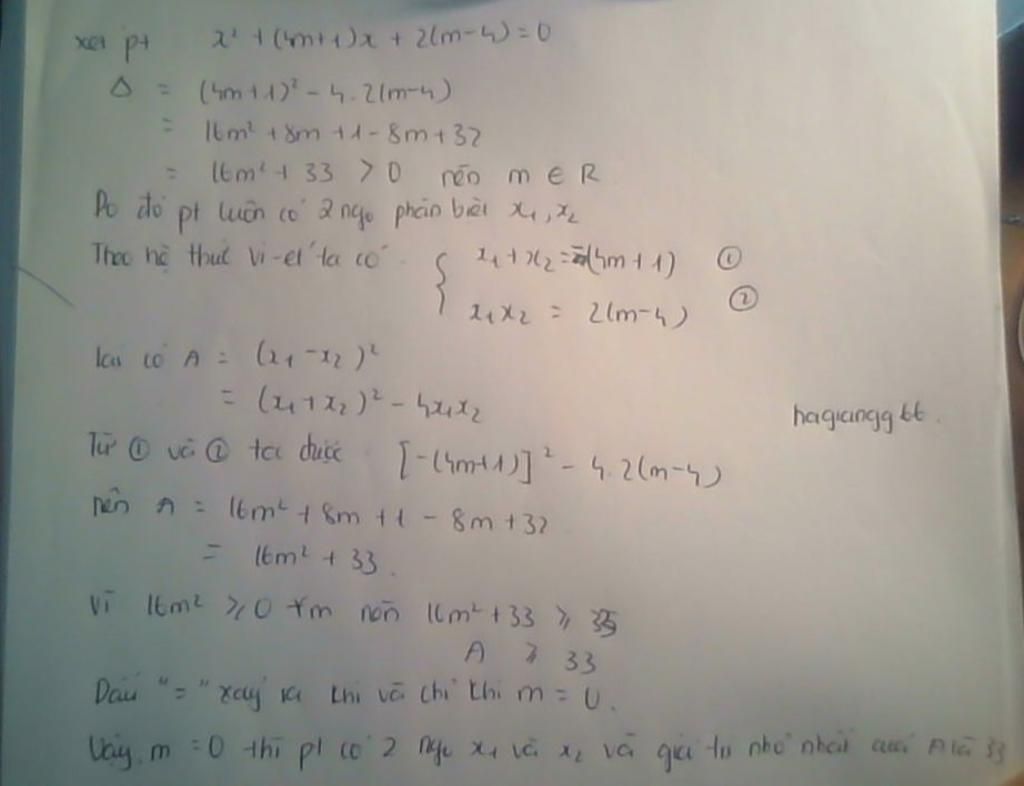 xét pt x² + (4m+1)x + 2(m-4) = 0
Δ = (4m+1)² - 4.2(m-4)
= 16m² + 8m + 1 - 8m + 32
= 16m² + 33 > 0 nên m ∈ R
Do đó pt luôn có 2 ngo phân biệt x₁, x₂
Theo hệ thức Vi-et ta có { x₁ + x₂ = -(4m+1) ①
x₁x₂ = 2(m-4) ②
lại có A = (x₁ - x₂)²
= (x₁ + x₂)² - 4x₁x₂
hagiangg66.
Từ ① và ② ta được [-(4m+1)]² - 4.2(m-4)
nên A = 16m² + 8m + 1 - 8m + 32
= 16m² + 33.
Vì 16m² ⩾ 0 ∀m nên 16m² + 33 ⩾ 33
A ⩾ 33
Dấu "=" xảy ra khi và chỉ khi m = 0.
Vậy m = 0 thì pt có 2 ngo x₁ và x₂ và giá trị nhỏ nhất của A là 33